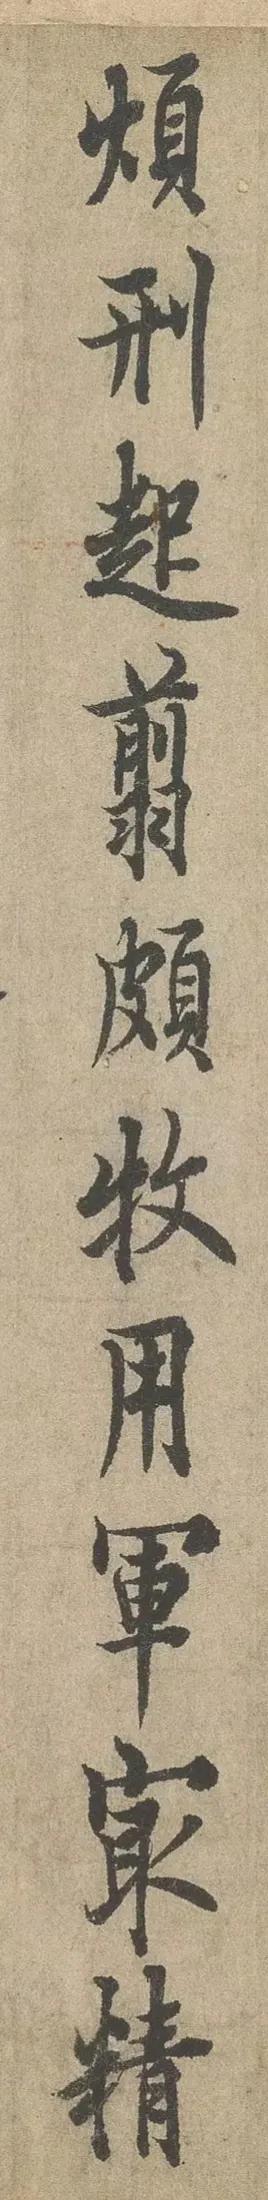 煩刑起翦頗牧用軍㝡精